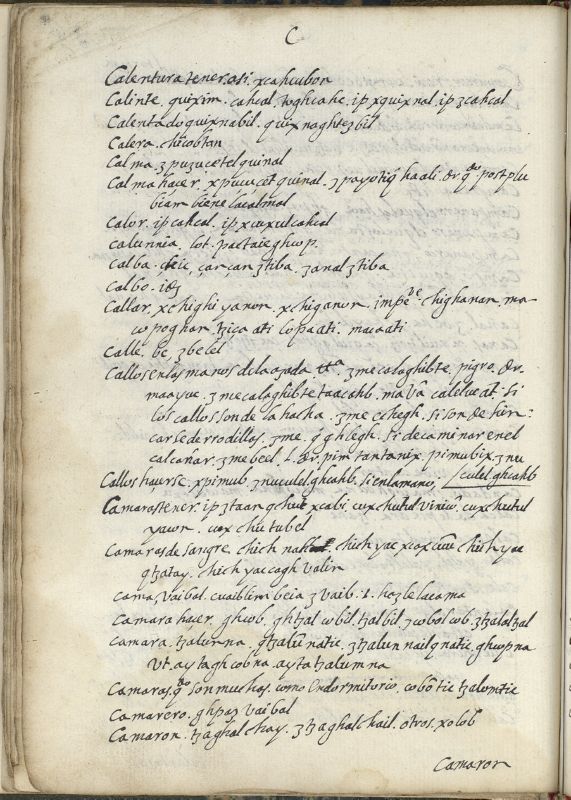 C
Calentura tener. asi. xcahcubon
Calinte. quixim. cahcal. toghcahe. ip xquixnal. ip ꜫcahcal
Calentado quixnabil. quixnaghteꜫbil
Calera. chicobtan
Calma ꜫpuꜫucetel quinal
Calma haçer. xpucucet quinal. ꜫpayutiꜫ haali. &r. qdo. por plu
biar viene lacalmal
Calor. ip cahcal. ip xcuxul cahcal
calunnia, lot. pactaieghcop.
calba. çarçanꜫtiba. ꜫanalꜫtiba
calbo. iꜫ
Callar. xchighi yanon. xchiganon. impe. chighanan. ma
copoghan. tꜫica ati lopaati. macaati
Calle. be. ꜫbelel
Callos en las manos de la açada ꜫmecalaghibte. pigro. &r.
maayuc. ꜫmecalaghibte taacahb. si
los callos son de la hacha. ꜫme cchegh. si son de hin:
carse de rodillas. ꜫme. ghlegh. si de caminar en el
calcañar. ꜫmebeel. l. &r. pim tantanix. pimubix. ꜫnu
Callos haçerse. xpimub. ꜫnuculel ghcahb. si en la mano, culel. ghcahb
Camaras tener. ip ꜫtaan xcabi. cuxchutul cuxchutul
yaon. cuxchutubel
Camaras de sangre. chich chich yac xcox chich yac
qꜩatay. chich yaccogh valin
Cama. vaibal. cuaiblim beia ꜫvaib. l. hazle lacama
Camara haçer. ghcob. ghtꜫal cobil. tꜫalbil. ꜫcobol cob. ꜫtꜫalaltꜫal
Camara. tꜫalumna. natic. ꜫtꜫalun nail qnatic. ghcopna
vt. ay tagh cobna. ayta tꜫalumna
Camaras, qdo son muchas, como En dormitorio, cobotic tꜫalomtic
Camarero. ghpaꜫ vaibal
Camaron. tꜫaghal chay. ꜫtꜫaghal chail. otros. xolob
Camaron